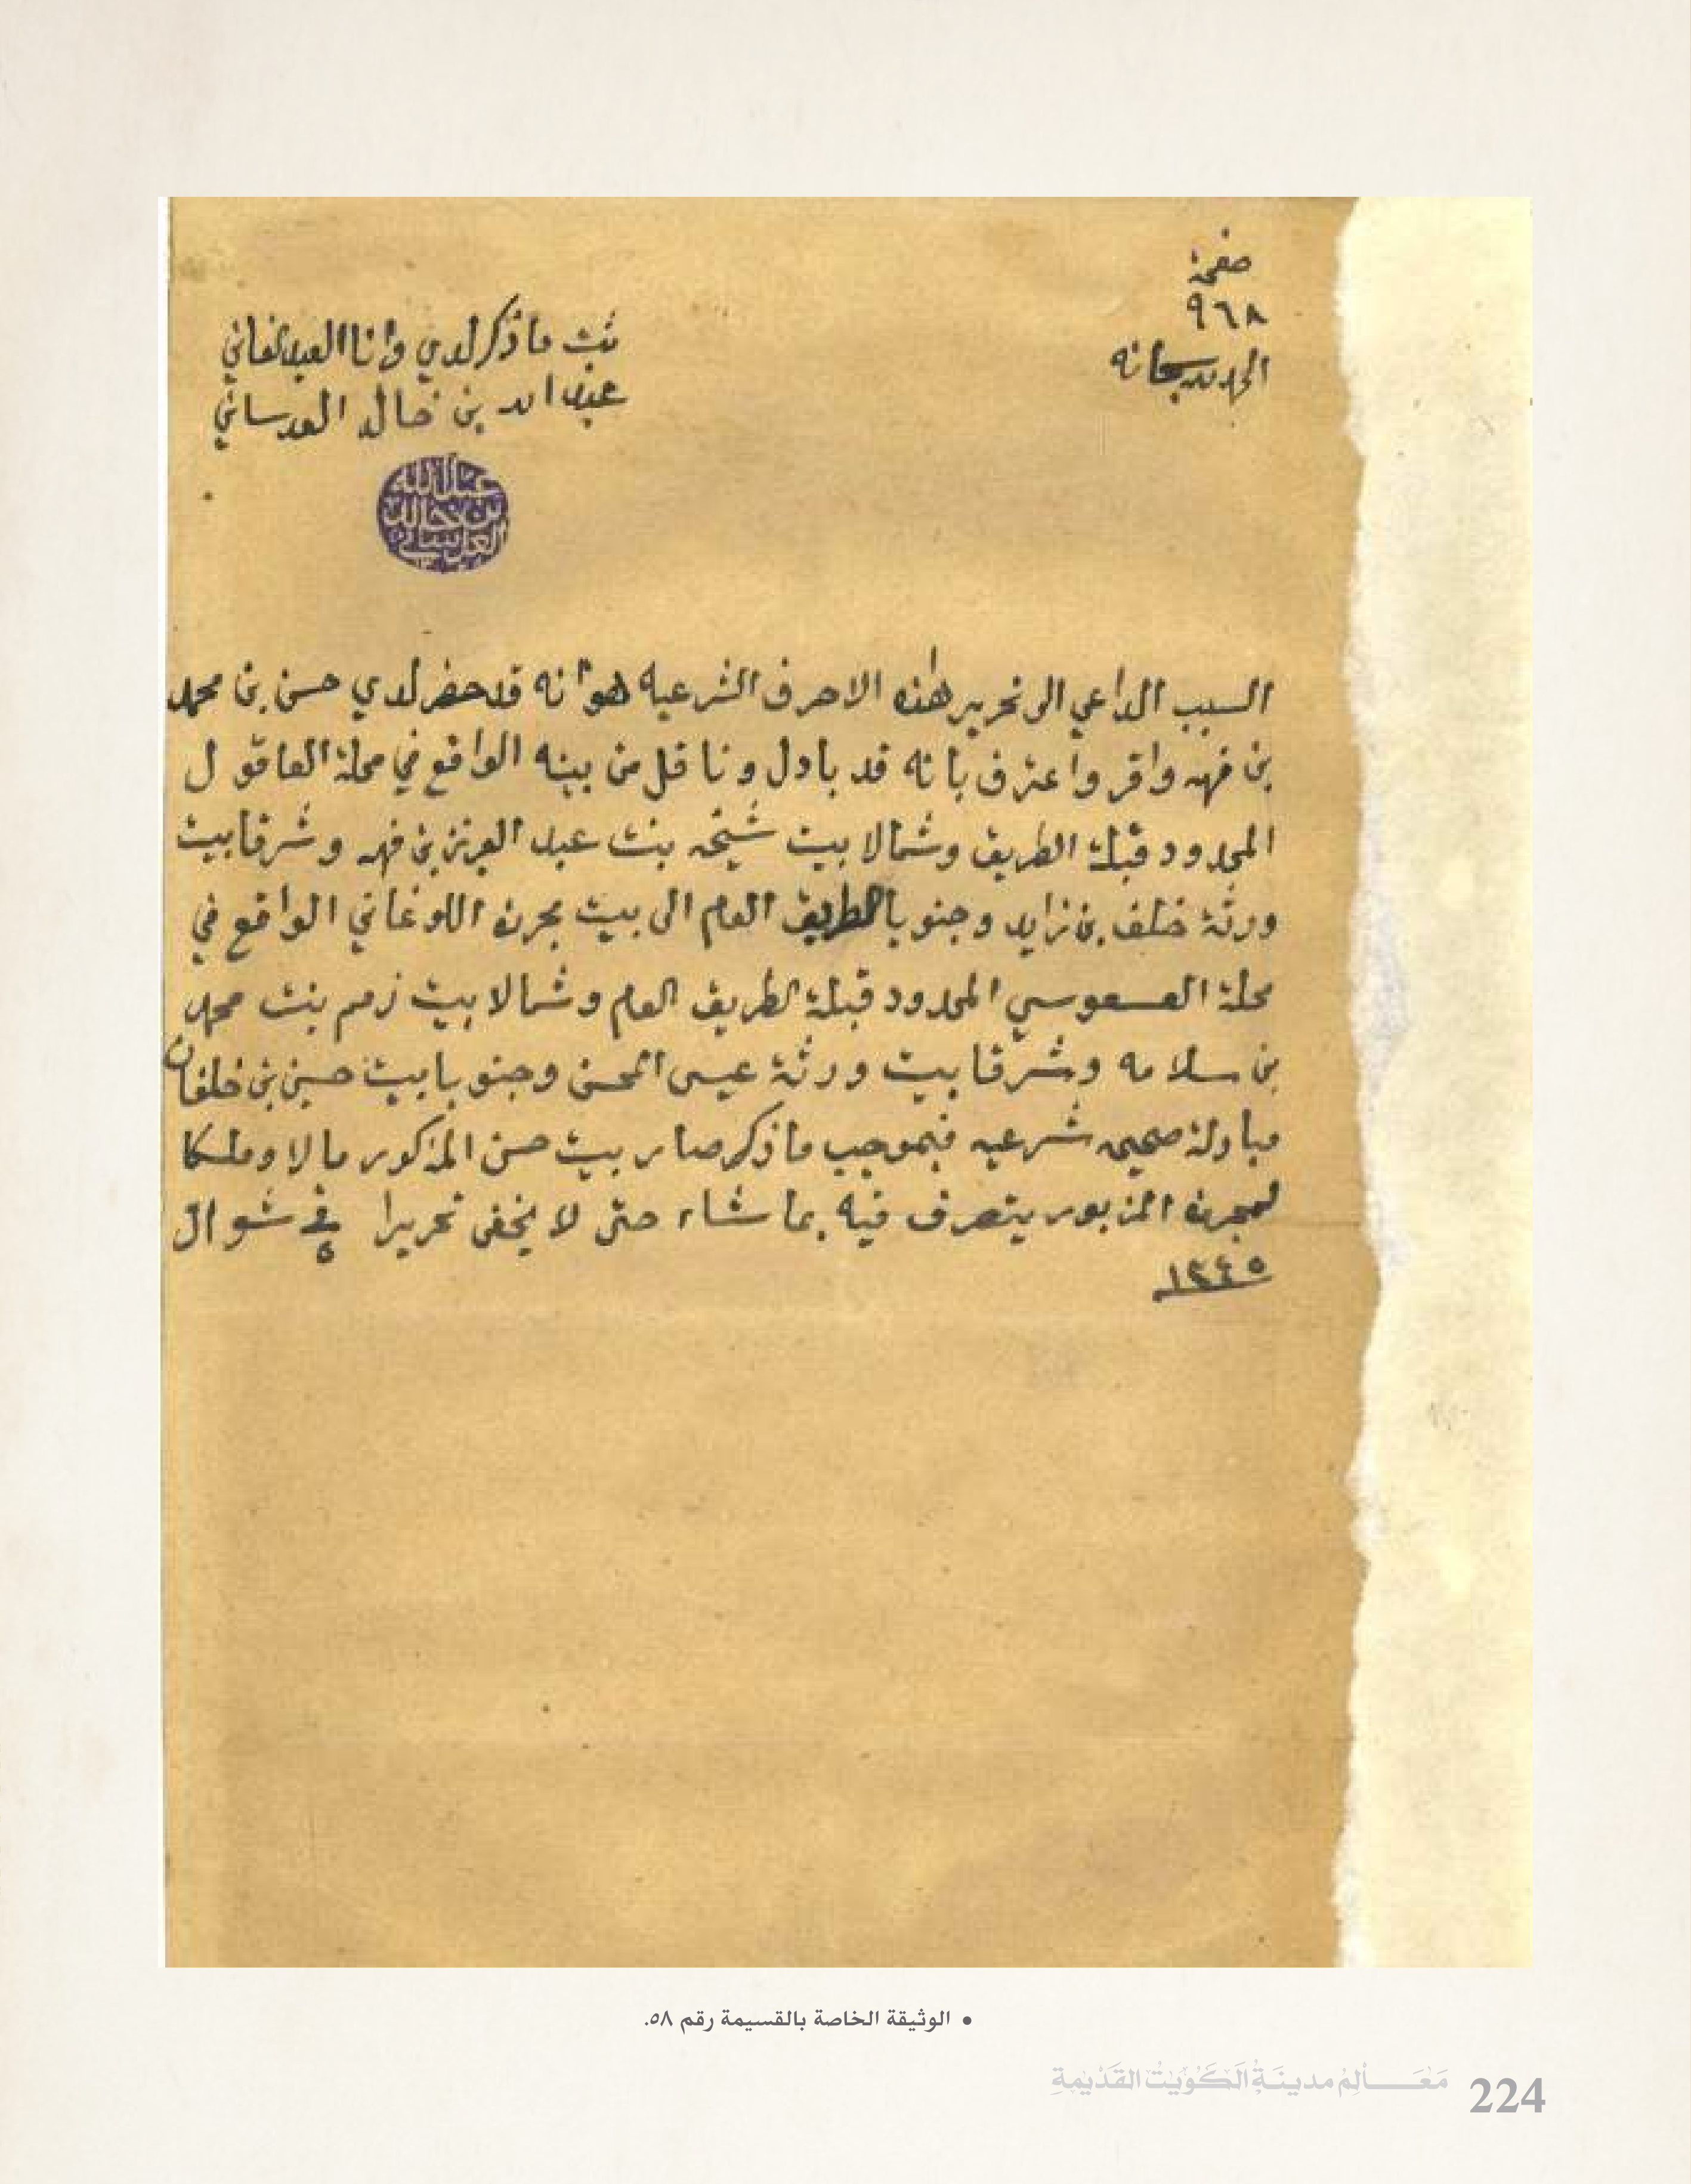 صفحة
٩٦٨
الحمد لله سبحانه
ثبت ما ذكر لدي وأنا العبد الفاني
عبد الله بن خالد العدساني
عبد الله
بن خالد
العدساني
السبب الداعي الى تحرير هذه الاحرف الشرعيه هو أنه قد حضر لدي حسن بن محمد
بن فهد واقر واعترف بانه قد بادل وناقل من بيته الواقع في محلة العاقول
المحدود قبلة الطريق وشمالا بيت شيخه بنت عبد العزيز بن فهد وشرقا بيت
ورثة خلف بن زايد وجنوبا الطريق العام الى بيت محمره اللوغاني الواقع في
محلة العسعوسي المحدود قبلة الطريق العام وشمالا بيت زمزم بنت محمد
بن سلامه وشرقا بيت ورثة عيسى المحسن وجنوبا بيت حسين بن خلفان
مبادلة صحيحه شرعيه فبموجب ما ذكر صار بيت حسن المذكور مالا وملكا
المزبور يتصرف فيه بما شاء حتى لا يخفى تحريرا في ٥ شوال
١٣٤٥
• الوثيقة الخاصة بالقسيمة رقم ٥٨.
مَعَــالِمُ مدينَةِ الكُوَيْتِ القَدْيْمةِ
224